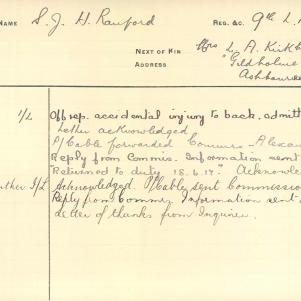 NAME S. J. H. Raxford REG. &C. 9th L.
NEXT OF KIN Mrs L. A. Kirkb
ADDRESS "Gildholme
Ashbourne
1/L Off. rep. accidental injury to back, admit
Letter acknowledged
P/Cable forwarded Commrs - Alexa
Reply from Commis. Information sent
"Returned to duty 18.6.17". Acknowle
ther 3/L Acknowledged. P/Cable sent Commissio
Reply from Commis. Information sent
Letter of thanks from Inquirer.